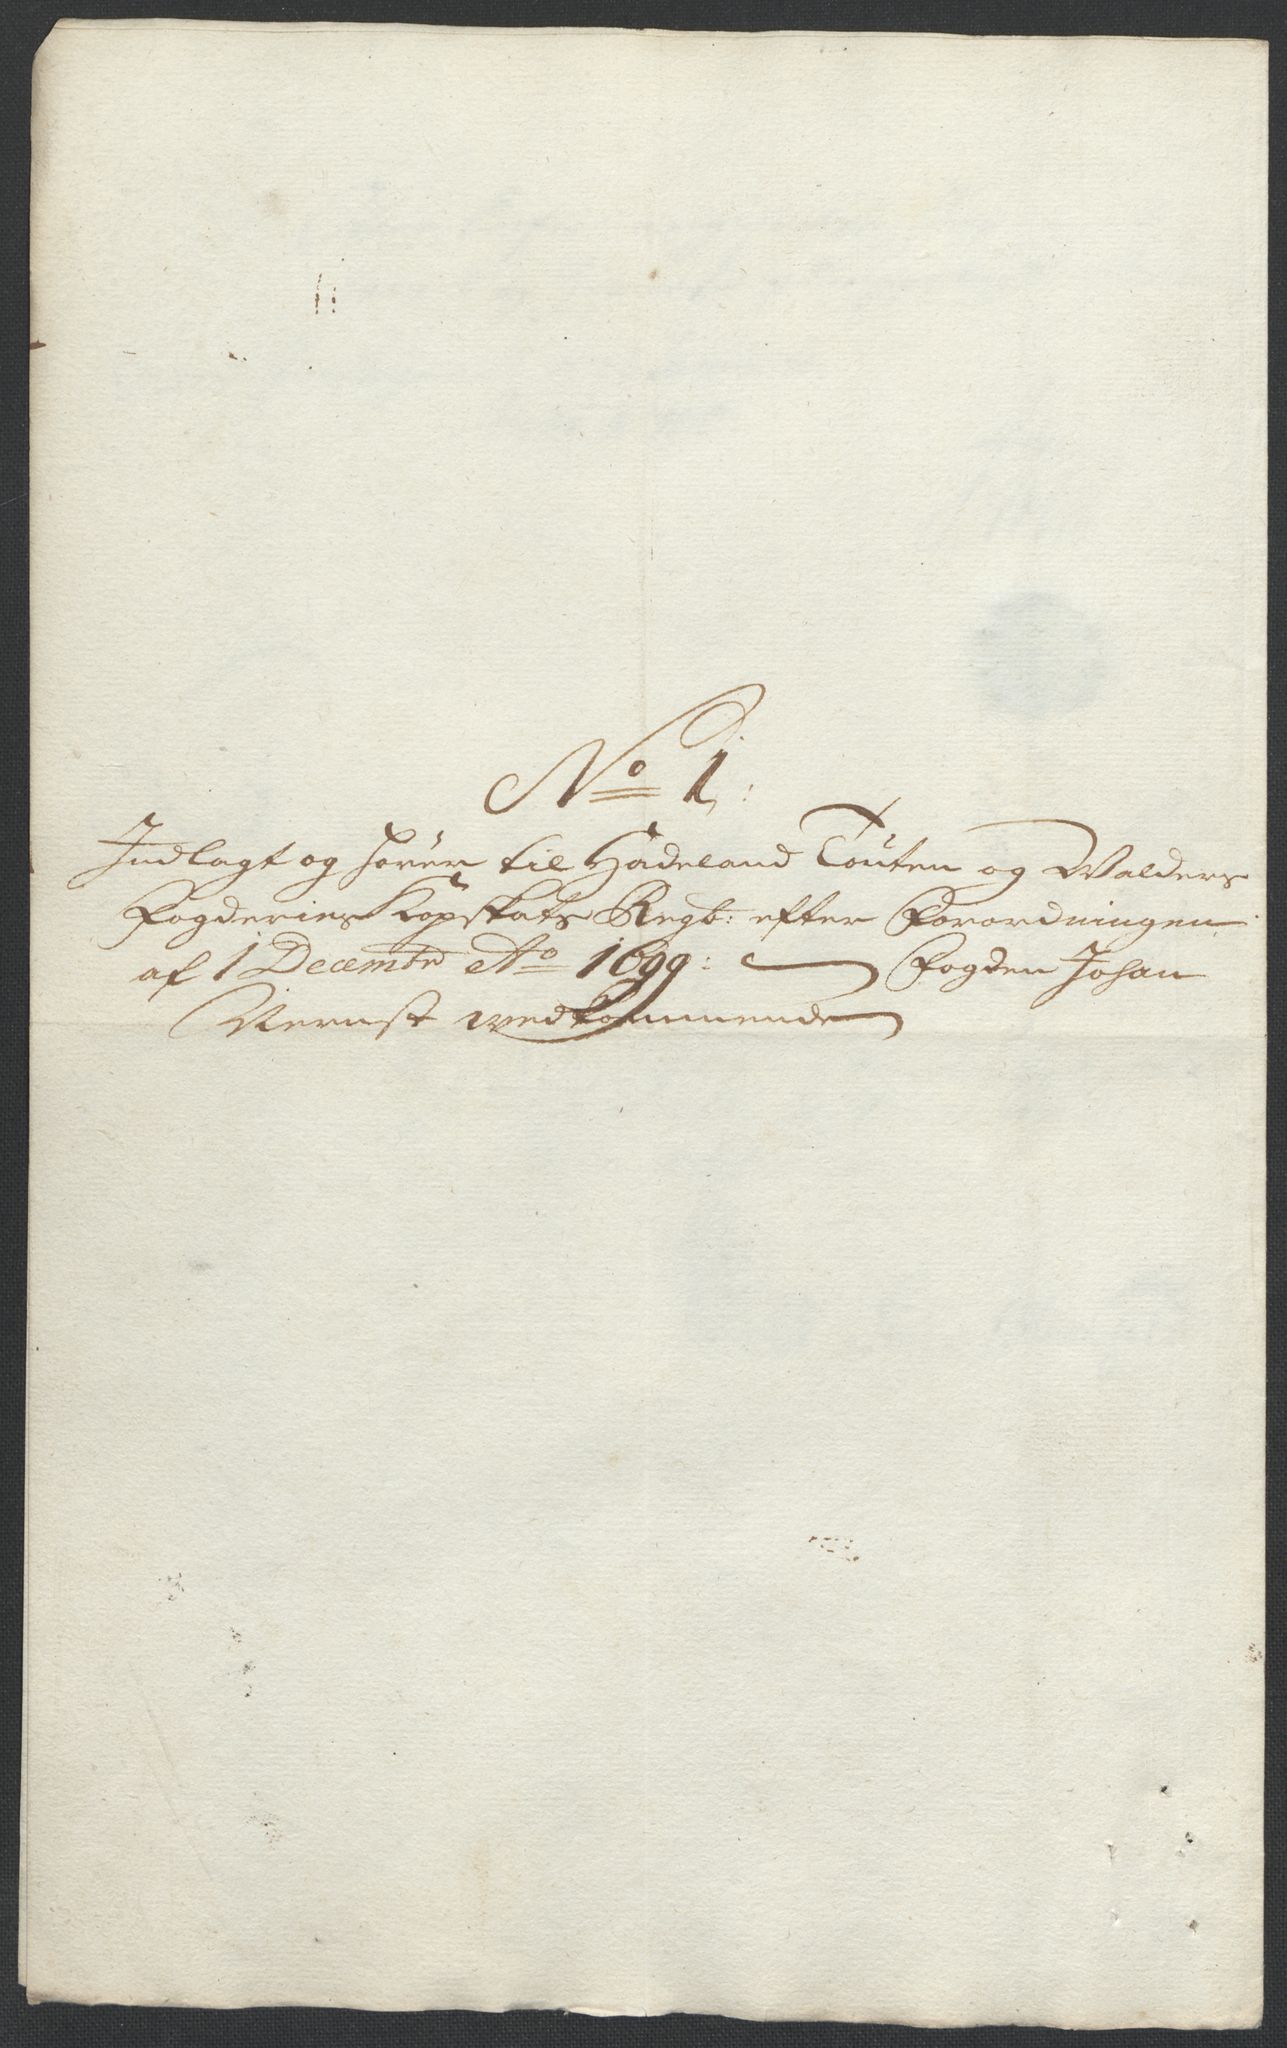 No 1:
Indlagt og hører til Hadeland Toten og Walders
Fogderies Kopskats Regb: efter Forordningen
af 1 Decembr Ao 1699: Fogden Johan
Viernst vedkommende